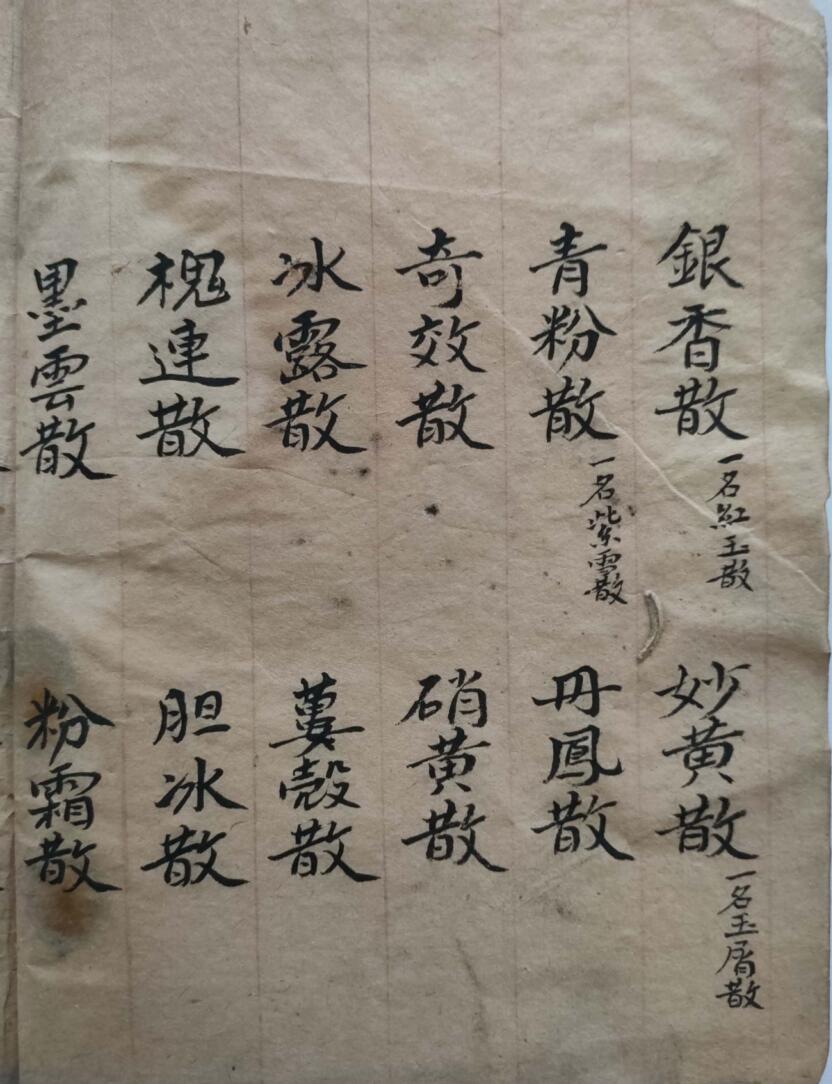 銀香散 一名紅玉散
妙黄散 一名玉屑散
青粉散 一名紫雪散
丹鳳散
奇效散
硝黄散
冰露散
蔞殼散
槐連散
胆冰散
墨雲散
粉霜散